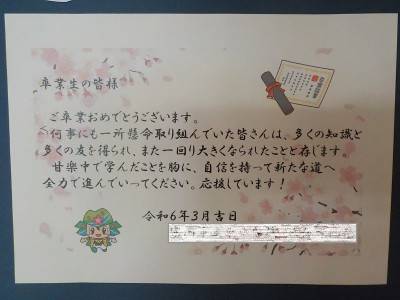 卒業生の皆様
ご卒業おめでとうございます。
何事にも一所懸命取り組んでいた皆さんは、多くの知識と
多くの友を得られ、また一回り大きくなられたことと存じます。
甘楽中で学んだことを胸に、自信を持って新たな道へ
全力で進んでいってください。応援しています！
令和6年3月吉日